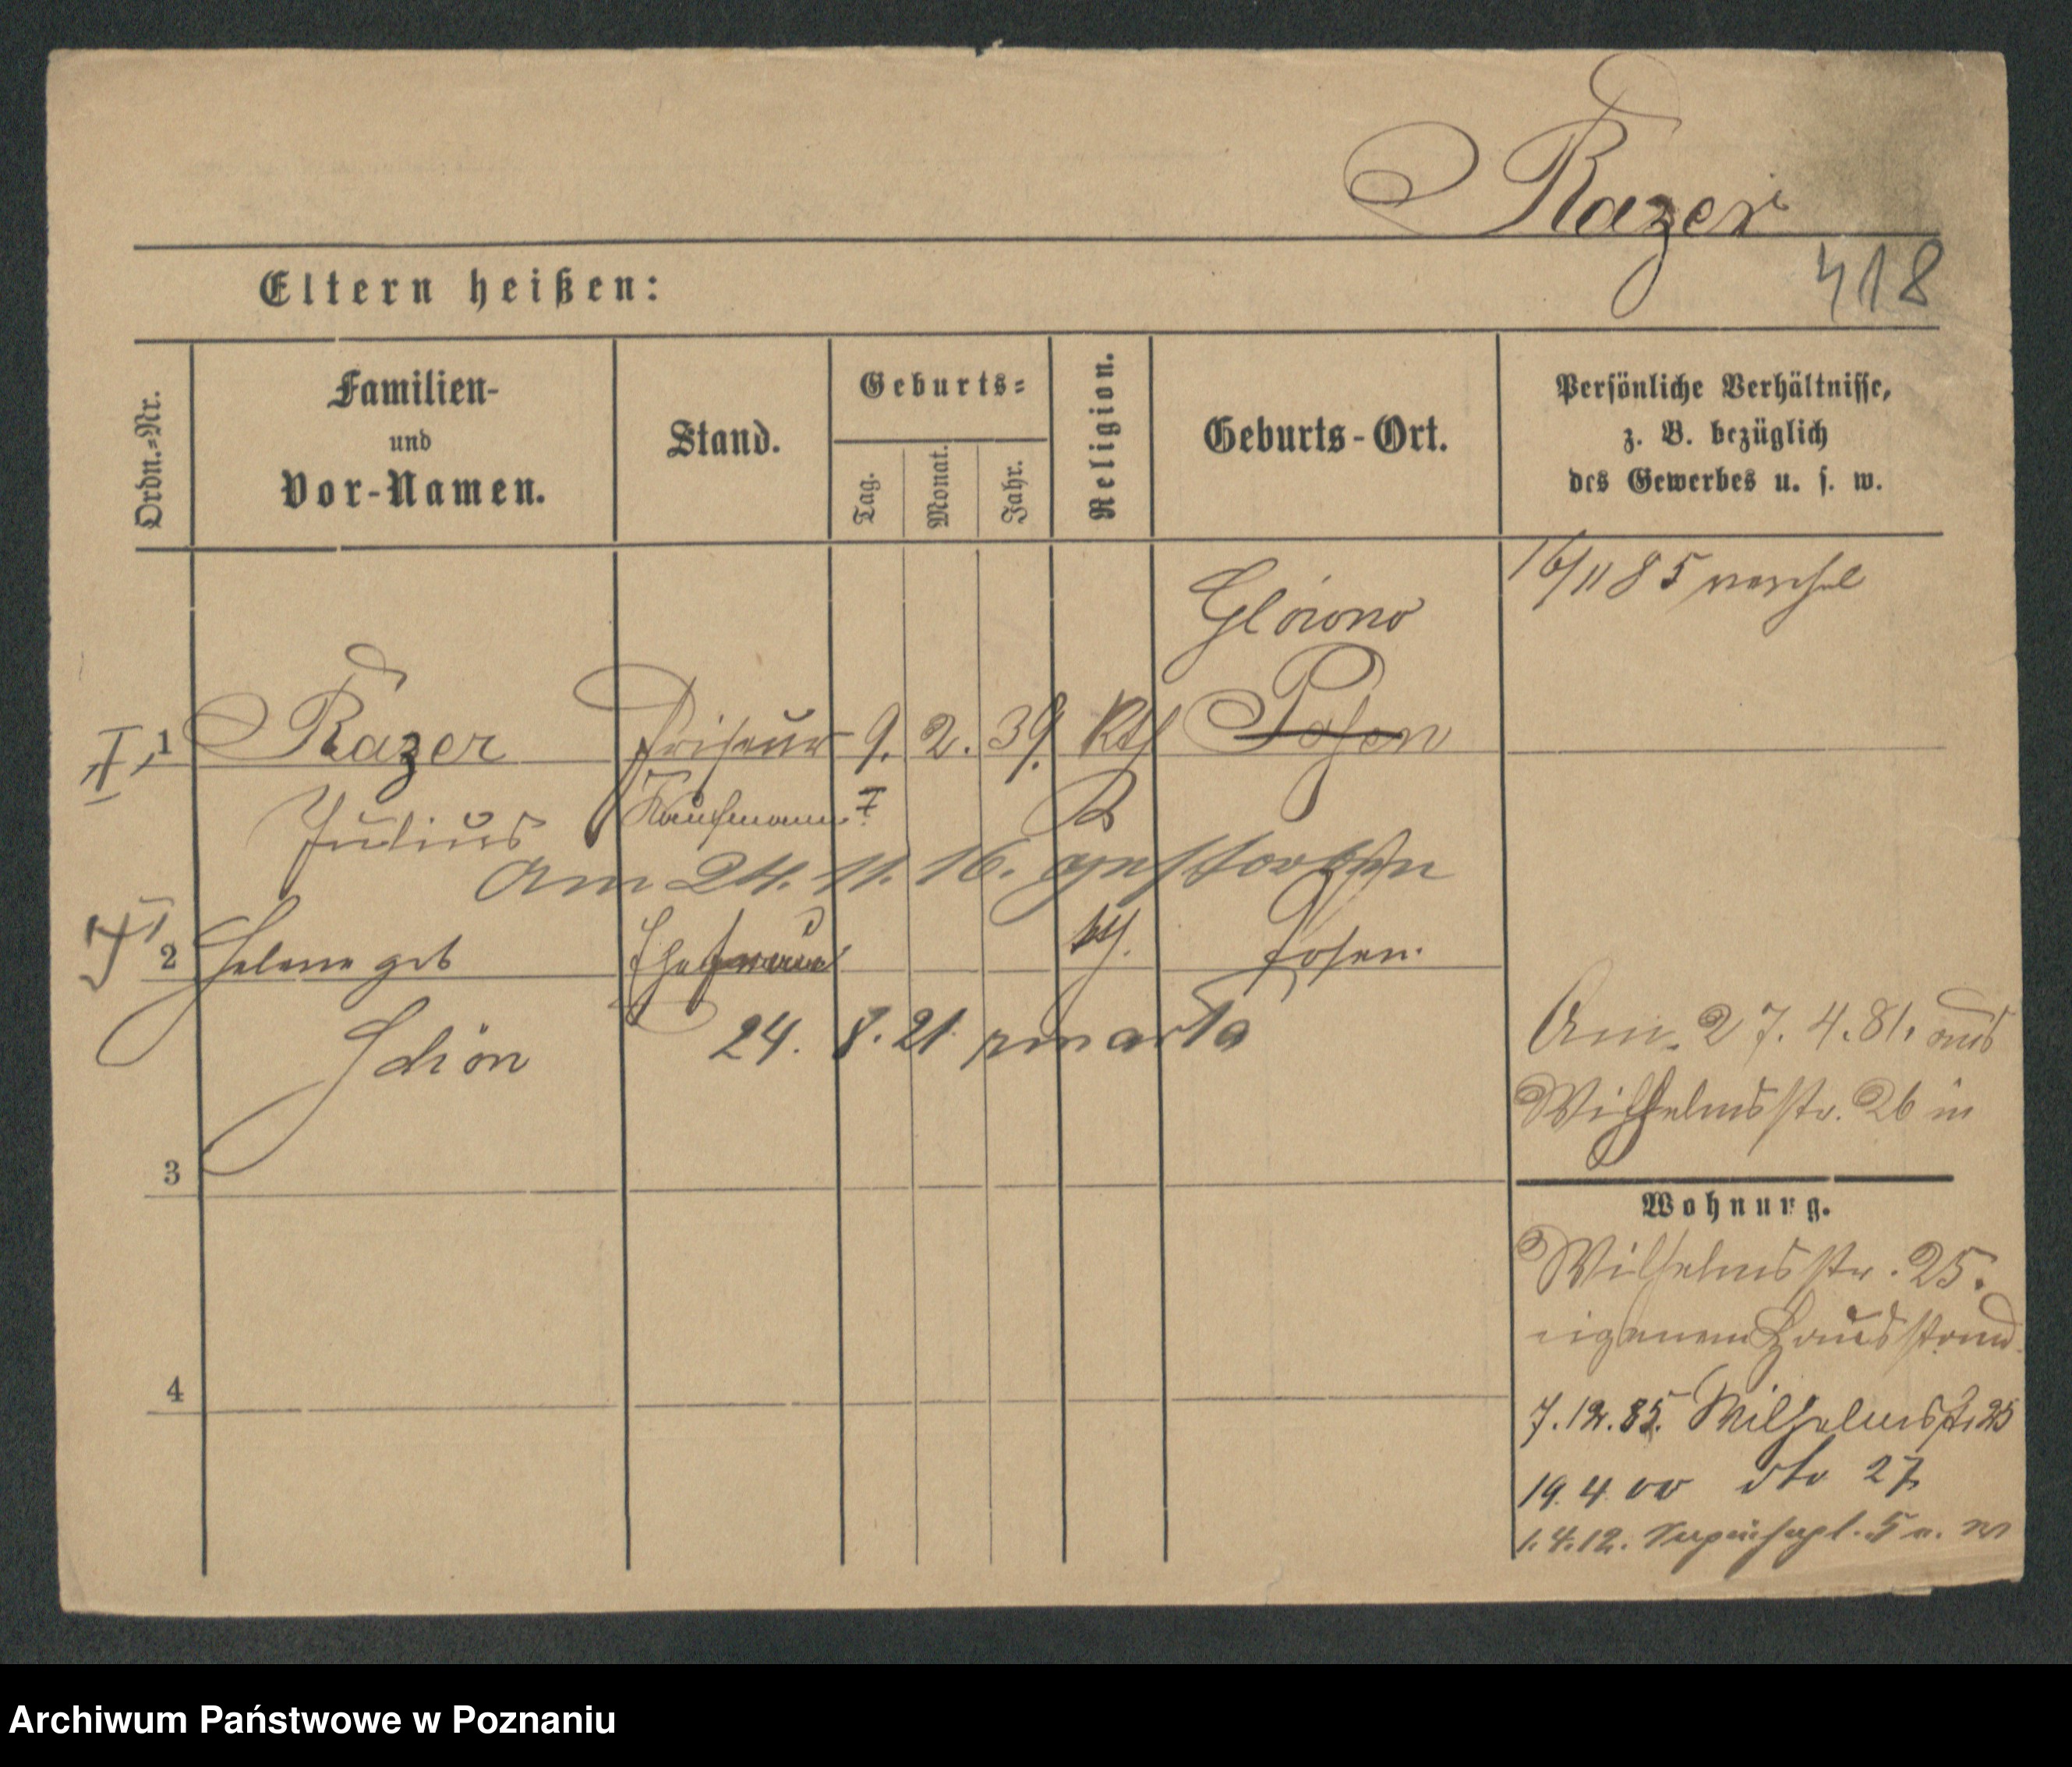 Razer
418
Eltern heißen:
Ordn.=Nr.
Familien-
und
Vor-Namen.
Stand.
Geburts=
Tag.
Monat.
Jahr.
Religion.
Geburts-Ort.
Persönliche Verhältnisse,
z. B. bezüglich
des Gewerbes u. s. w.
16/11 85
Glowno
I, 1 Razer Friseur 9. 2. 39. Kth Posen
Julius Kaufmann
Am 24. 11. 16. gestorben
2 Helene geb Ehefrau kth. Posen.
Schön 24. 8. 21 zmarła
Am 27. 4. 81. aus
Wilhelmsstr. 26 in
3
Wohnung.
Wilhelmsstr. 25.
eigenen Hausstand.
4
7. 12. 85. Wilhelmstr 25
19. 4 00 dto 27
1. 4. 12.
Archiwum Państwowe w Poznaniu